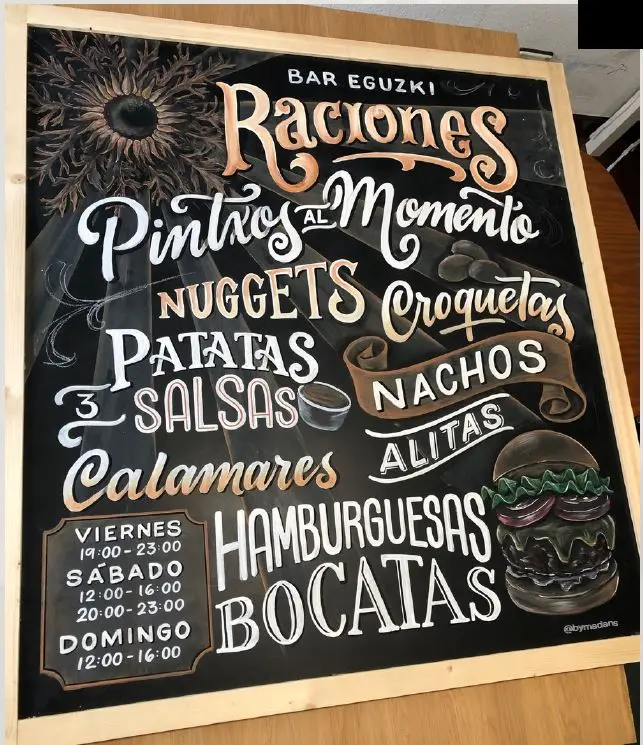 BAR EGUZKI
Raciones
Pintxos AL Momento
NUGGETS
Croquetas
PATATAS
3 SALSAS
NACHOS
ALITAS
Calamares
HAMBURGUESAS
BOCATAS
VIERNES
19:00-23:00
SÁBADO
12:00-16:00
20:00-23:00
DOMINGO
12:00-16:00
@bymadans